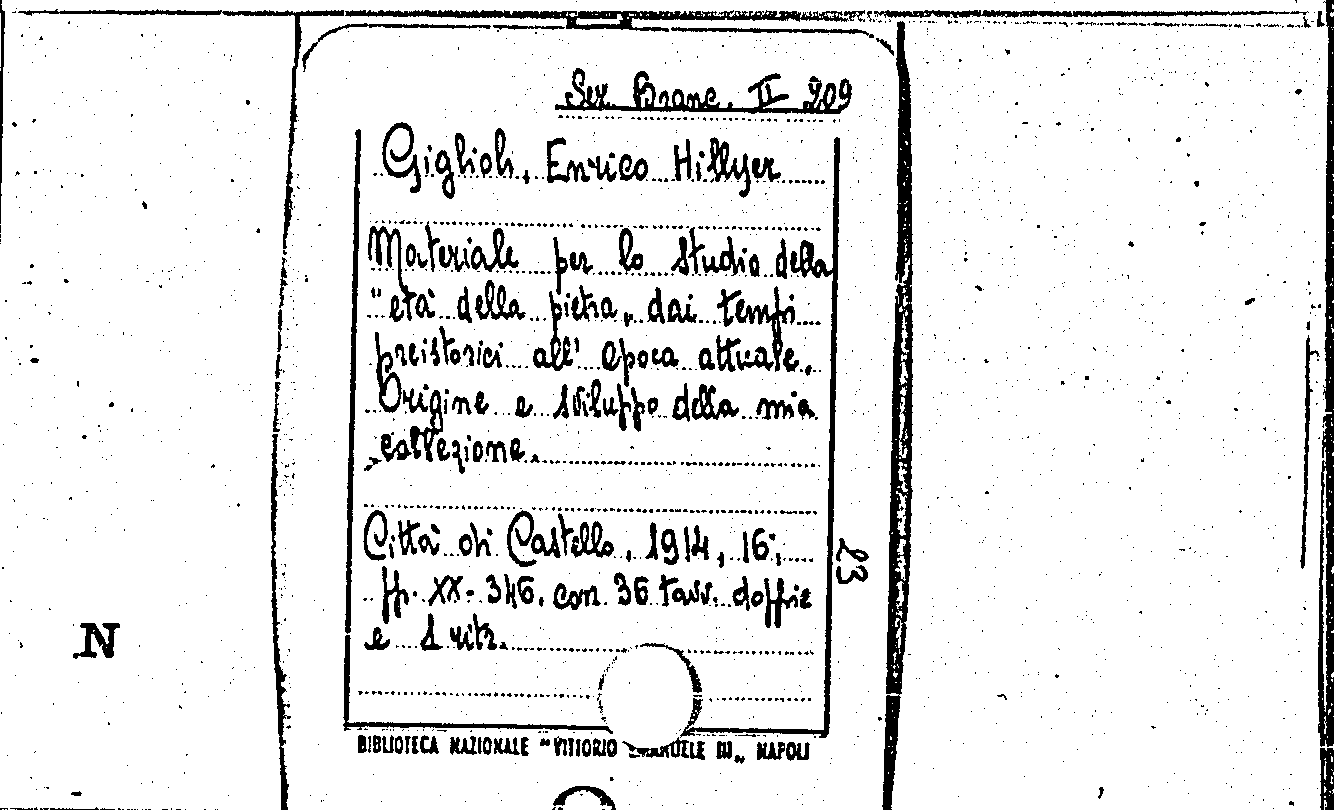 Sez. Branc. II 209
Giglioli, Enrico Hillyer
Materiale per lo studio della
"età della pietra„ dai tempi
preistorici all' epoca attuale.
Origine e sviluppo della mia
collezione.
Città di Castello, 1914, 16°,
pp. XX-346. con 36 tavv. doppie
e 1 ritr.
23
N
BIBLIOTECA NAZIONALE "VITTORIO EMANUELE III„ NAPOLI